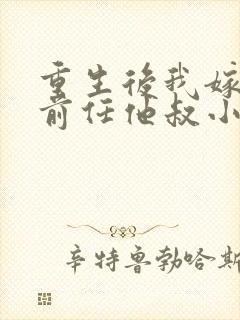 重生後我嫁
前任他叔小
辛特魯勃哈斯